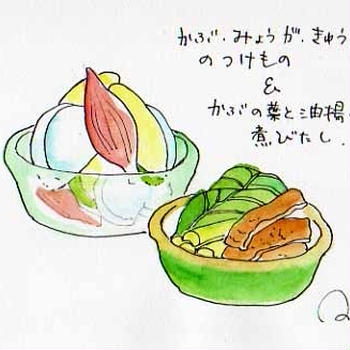 かぶ・みょうが・きゅう
のつけもの
&
かぶの葉と油揚
煮びたし.